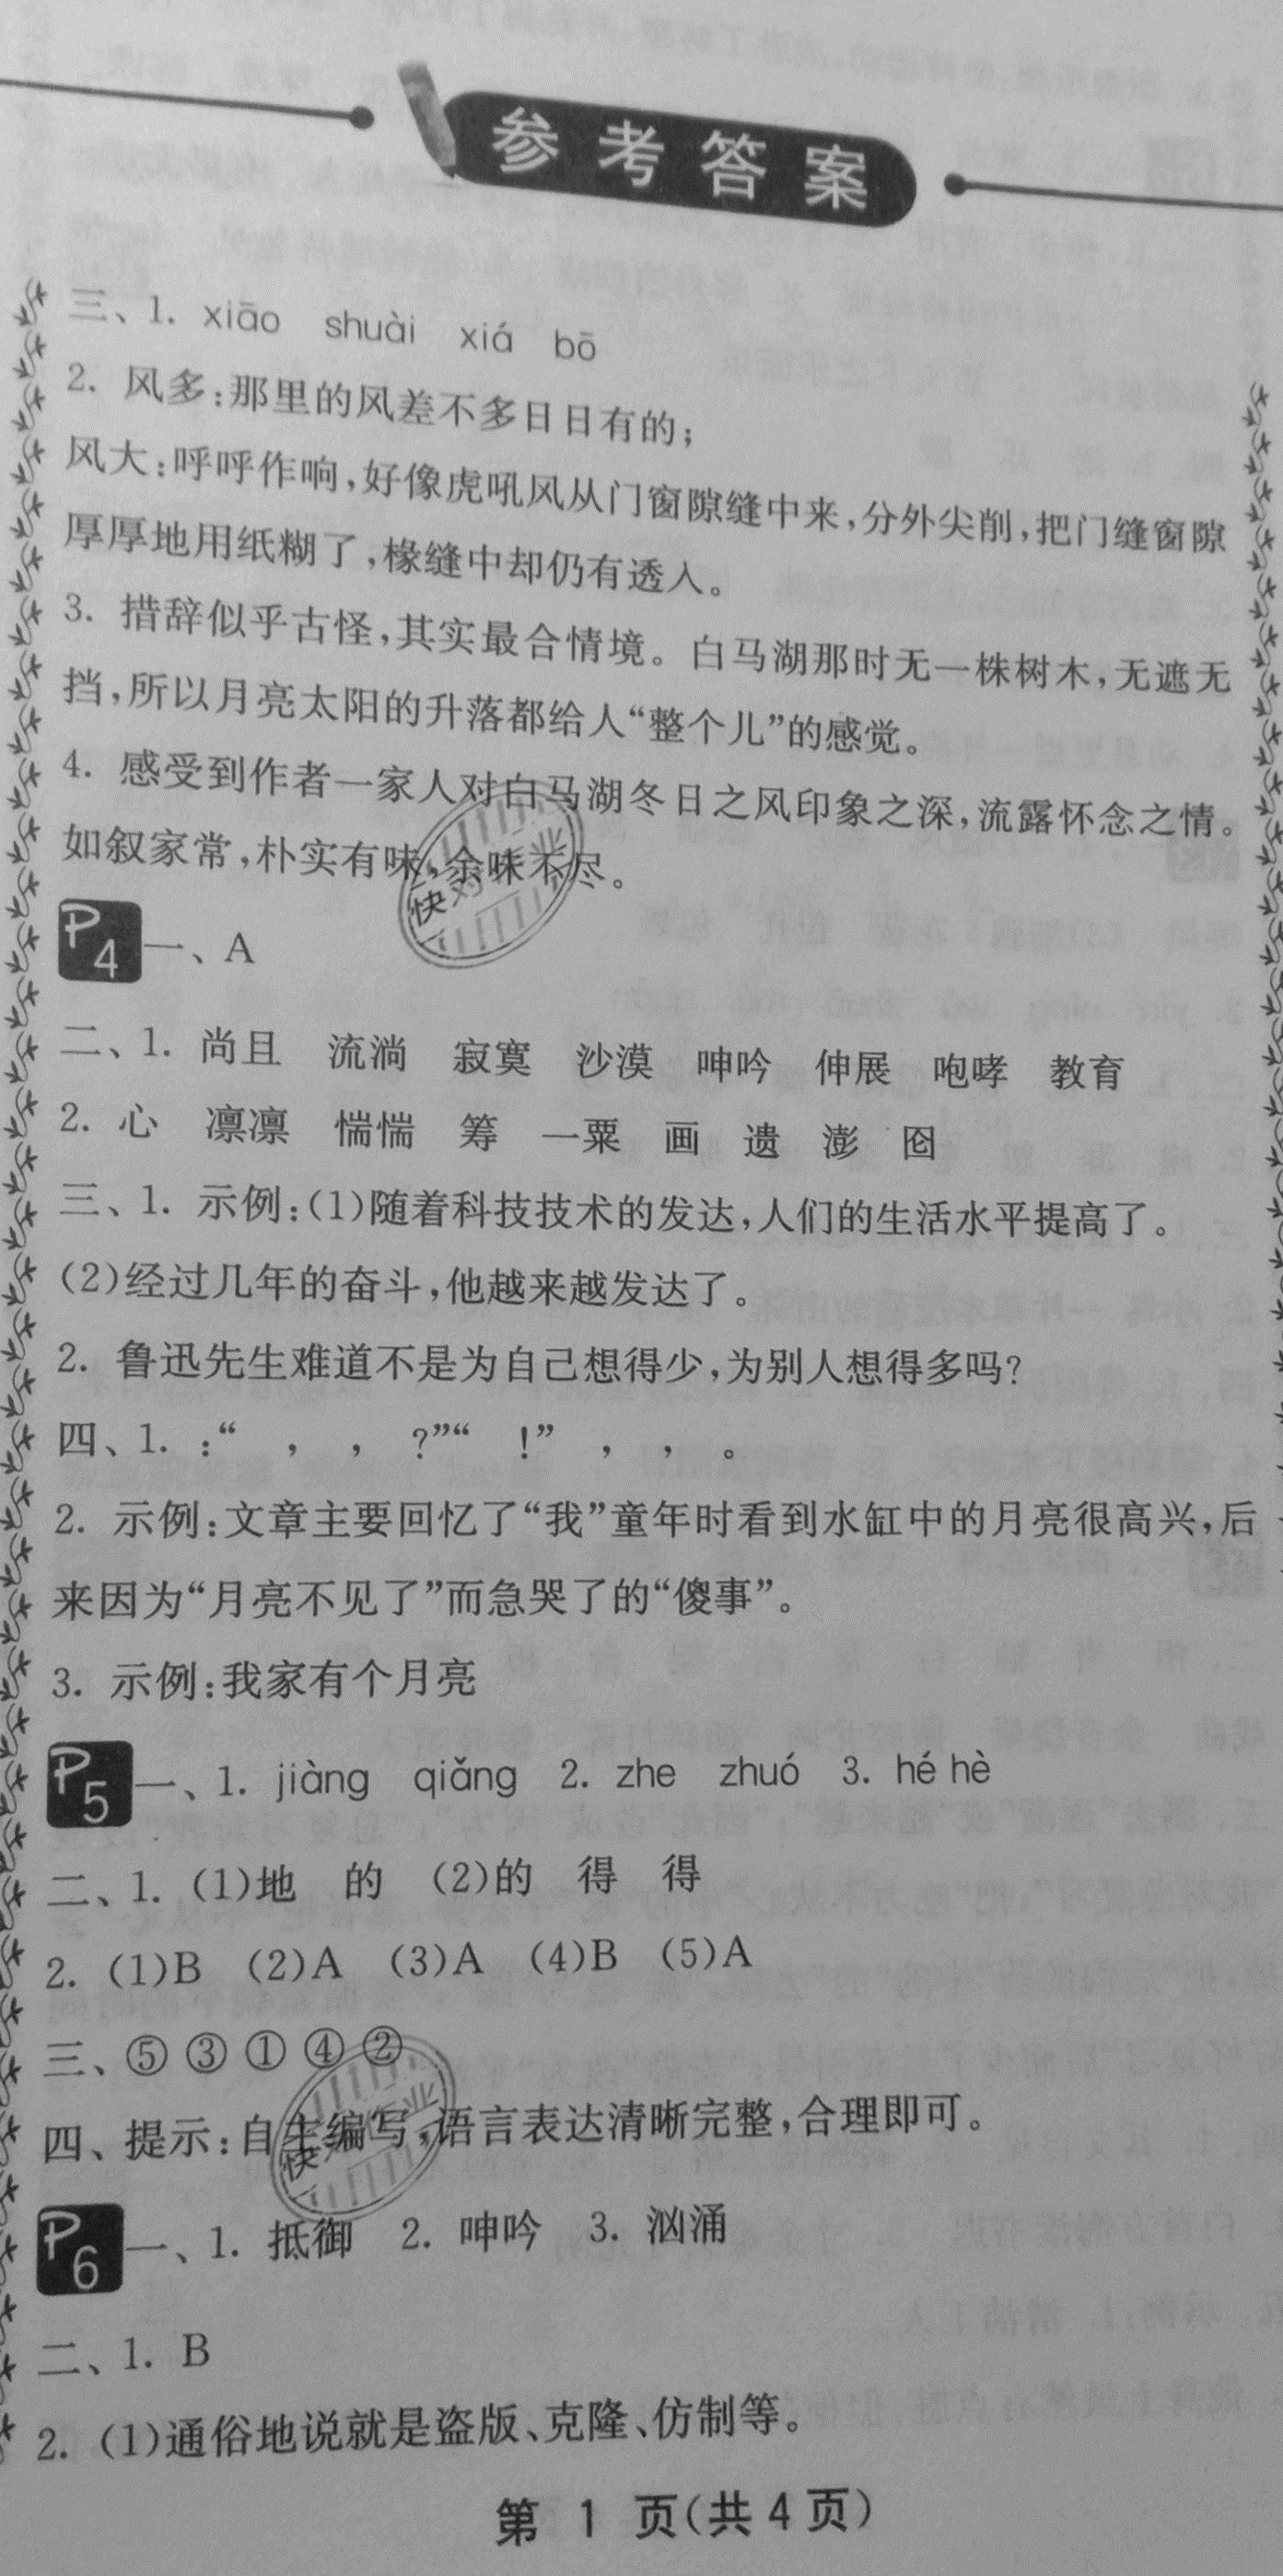 参考答案
三、1. xiāo shuài xiá bō
2. 风多:那里的风差不多日日有的;
风大:呼呼作响,好像虎吼风从门窗隙缝中来,分外尖削,把门缝窗隙
厚厚地用纸糊了,椽缝中却仍有透入。
3. 措辞似乎古怪,其实最合情境。白马湖那时无一株树木,无遮无
挡,所以月亮太阳的升落都给人“整个儿”的感觉。
4. 感受到作者一家人对白马湖冬日之风印象之深,流露怀念之情。
如叙家常,朴实有味,余味不尽。
P4 一、A
二、1. 尚且 流淌 寂寞 沙漠 呻吟 伸展 咆哮 教育
2. 心 凛凛 惴惴 筹 一粟 画 遗 澎 囵
三、1. 示例:(1)随着科技技术的发达,人们的生活水平提高了。
(2)经过几年的奋斗,他越来越发达了。
2. 鲁迅先生难道不是为自己想得少,为别人想得多吗?
四、1. :“ , , ?”“ !” , , 。
2. 示例:文章主要回忆了“我”童年时看到水缸中的月亮很高兴,后
来因为“月亮不见了”而急哭了的“傻事”。
3. 示例:我家有个月亮
P5 一、1. jiàng qiǎng 2. zhe zhuó 3. hé hè
二、1. (1)地 的 (2)的 得 得
2. (1)B (2)A (3)A (4)B (5)A
三、⑤ ③ ① ④ ②
四、提示:自主编写,语言表达清晰完整,合理即可。
P6 一、1. 抵御 2. 呻吟 3. 汹涌
二、1. B
2. (1)通俗地说就是盗版、克隆、仿制等。
第 1 页(共 4 页)